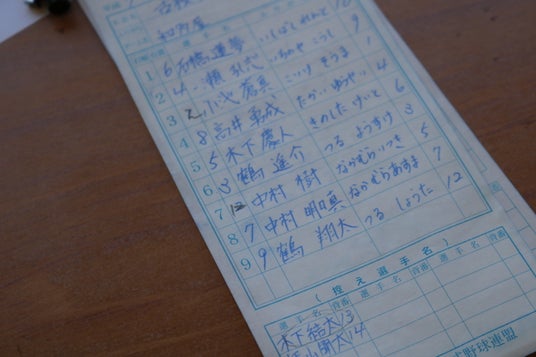 選手名
1 6 石橋蓮夢 いしばしれんと 10
2 4 一瀬 いちのせ こうし 9
3 2 小弐蒼真 そうま 1
4 8 高井勇成 たかい ゆうせい 4
5 5 木下慶人 きのしたけいと 6
6 3 鶴 遥介 つる ようすけ 3
7 中村 樹 なかむらいつき 5
8 7 中村明日真 なかむらあすま 7
9 9 鶴 翔太 つる しょうた 12
(控え選手名)
選手名 背番 選手名 背番 選手名 背番
木下結太13
14
野球連盟